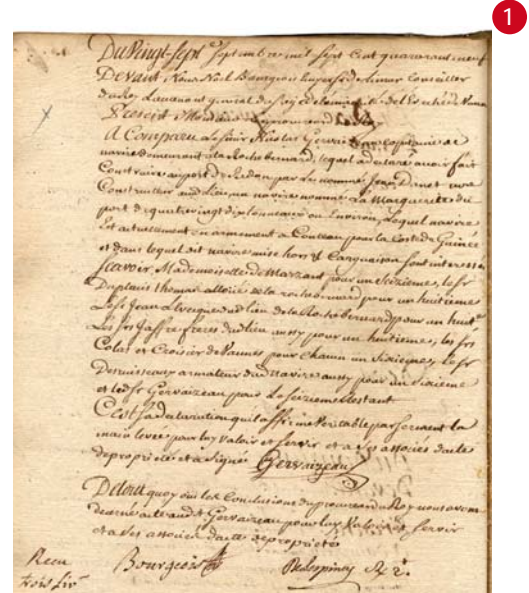 1
Du Vingt-sept septembre mil sept cent quarante neuf
Devant Nous Noel Bourgeois Conseiller
du Roy Lieutenant general du siege de Vannes
Present
A Comparu Le sieur Nicolas Gervaizeau capitaine de
navire demeurant a la Rochebernard, lequel a declaré avoir fait
Construire au port de Redon par Le nommé Jean Danet
Constructeur audit lieu un navire nommé La Marguerite du
port de quatre vingt dix tonneaux ou Environ, Lequel navire
Est actuellement en armement a pour la Coste de Guinée
et dans lequel dit navire mise hors & Cargaison sont interessés
scavoir, Mademoiselle de Marzant pour un seizieme, le sr
Duplaix thomas de la rochebernard pour un huitieme
Le sr Jean Levesque dud lieu de la Rochebernard pour un huit.
Les srs Jaffre freres dud lieu aussy pour un huitieme, les srs
Colas et Croisier de Vannes pour chacun un sixieme, le sr
Desruisseaux armateur dud navire aussy pour un sixieme
et led sr Gervaizeau pour Le seizieme restant
C'est sa declaration qu'il affirme veritable par serment la
main levée pour luy valoir et servir et a ses associés d'acte
de proprieté et a signé Gervaizeau
De tout quoy oui les Conclusions du procureur du Roy nous avons
decerné acte aud sr Gervaizeau pour luy valoir et servir
et a ses associés d'acte de proprieté
Reçu
trois liv
Bourgeois